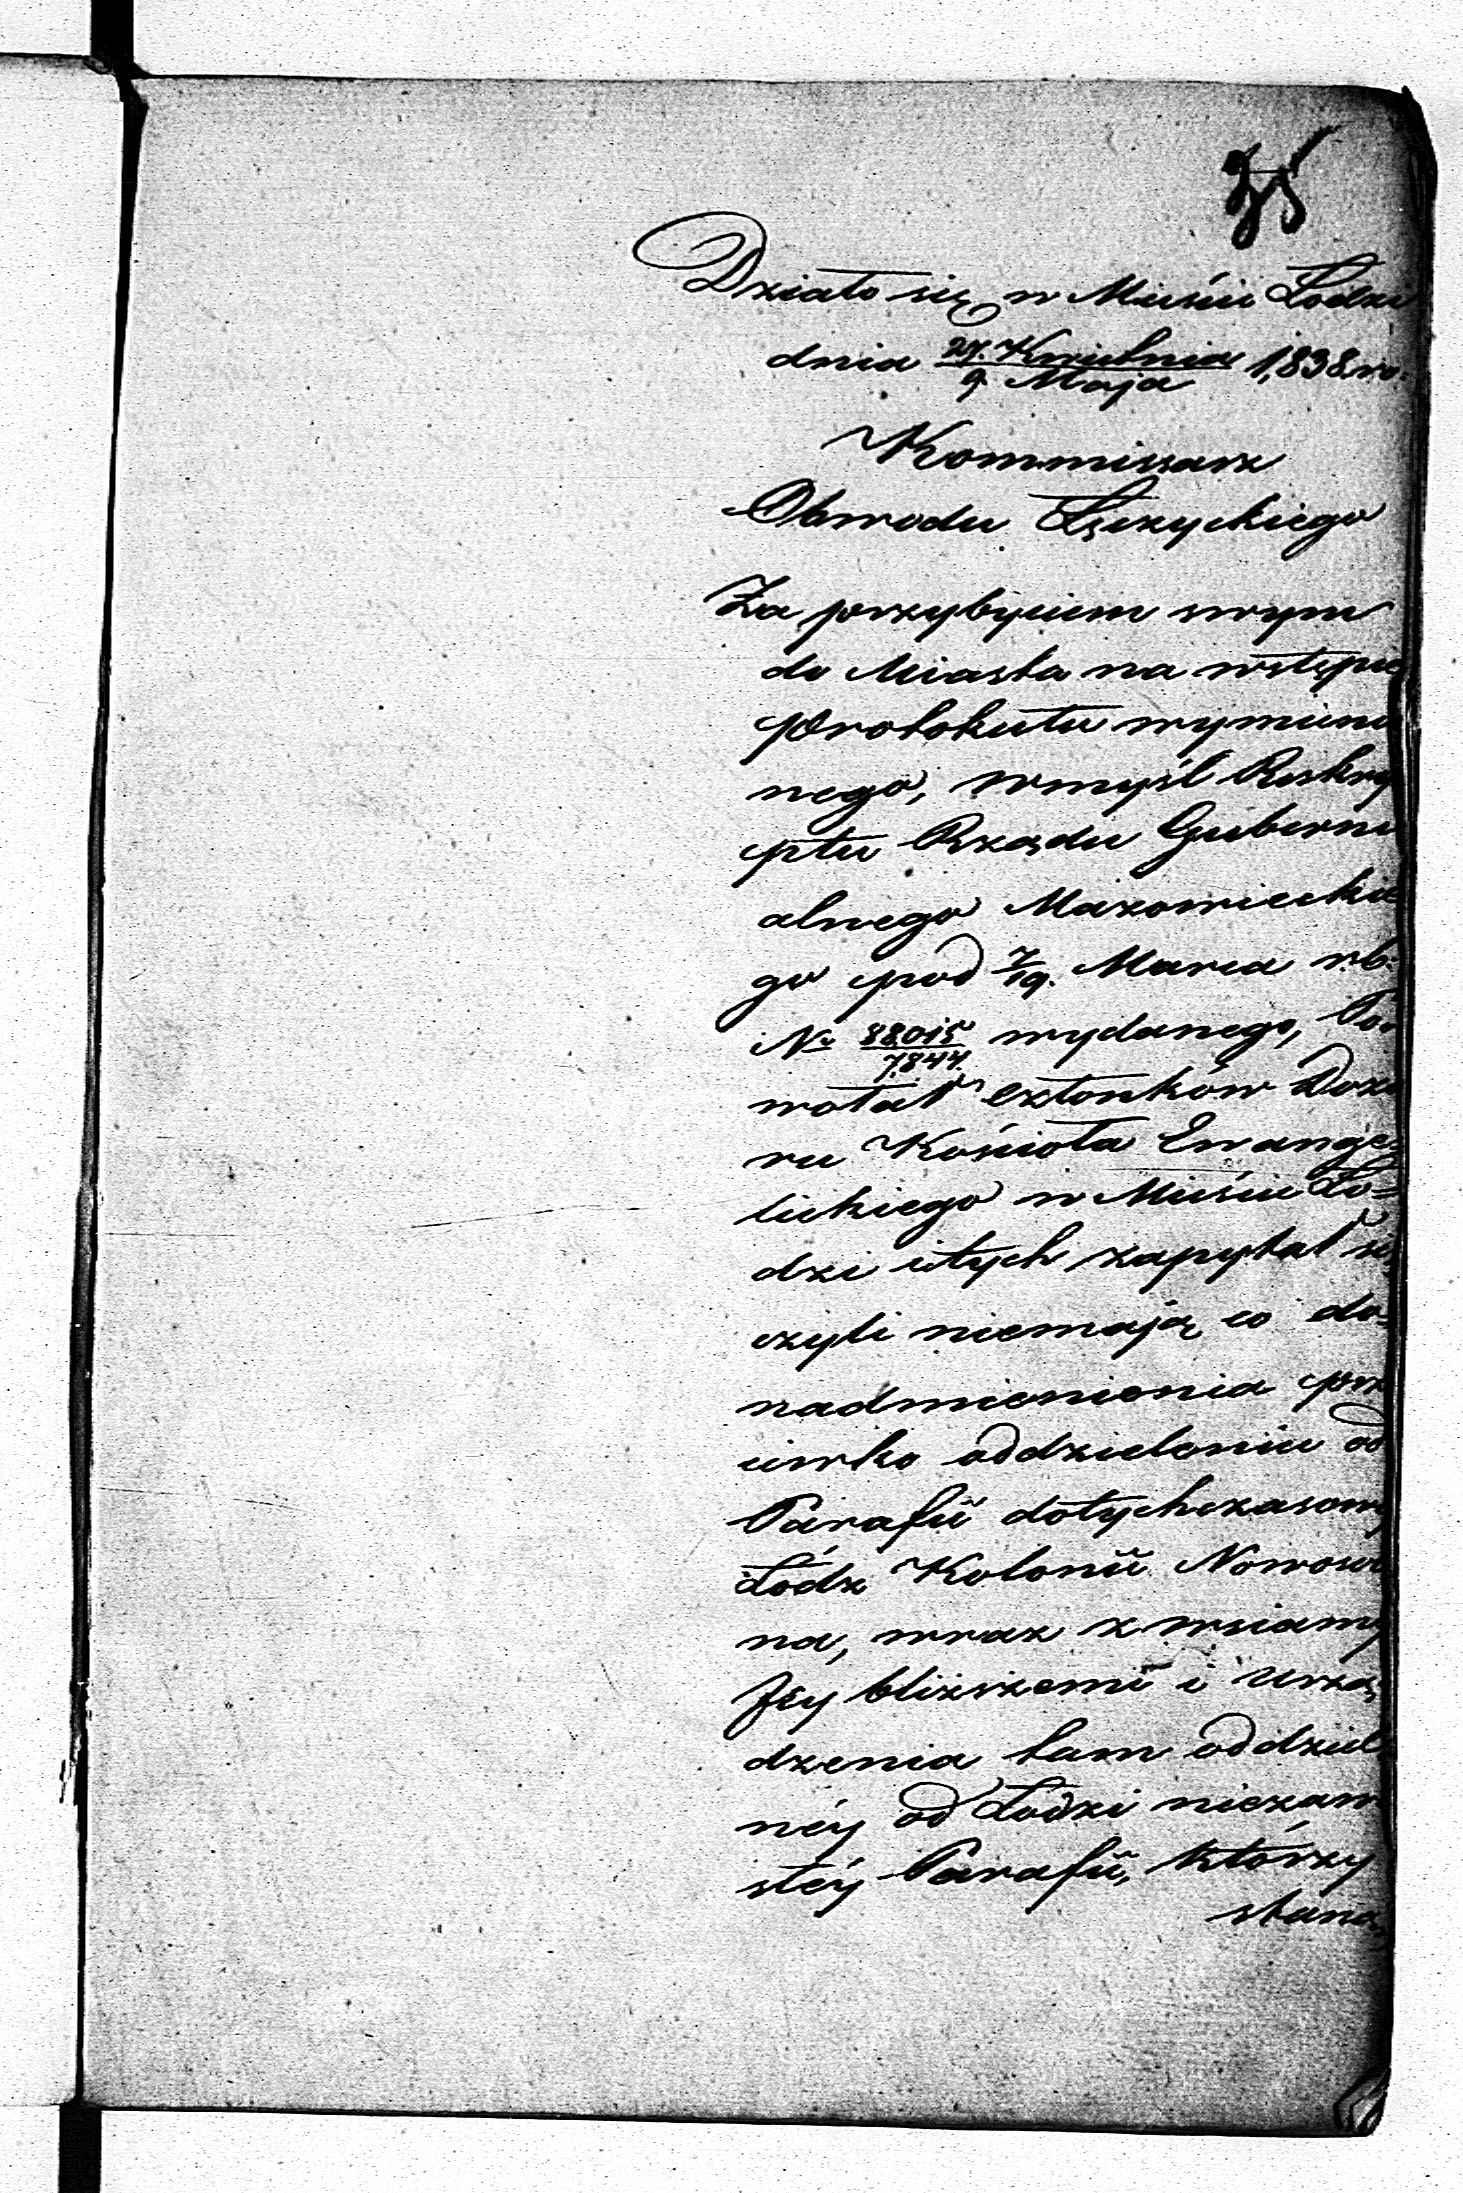 35
Działo się w Mieście Łodzi
dnia 27. Kwietnia / 9 Maja 1,838 ro.
Kommissarz
Obwodu Łęczyckiego
Za przybyciem swym
do Miasta na wstępie
protokułu wymienio
nego, w myśl Reskry
ptu Rządu Guberni
alnego Mazowieckie
go pod 7/19. Marca r.b.
No 88015/7844. wydanego, Po=
wołał członków Dozo
ru Kościoła Ewange=
lickiego w Mieście Ło=
dzi i tych zapytał się
czyli niemają co do=
nadmienienia prze
ciwko oddzieleniu od
Parafii dotychczasowey
Łódz Kolonii Nowosol
na, wraz z wsiamy
Jey bliższemi i urzą
dzenia tam oddziel
néy od Łodzi niezawi
stéy Parafii, którzy
staną